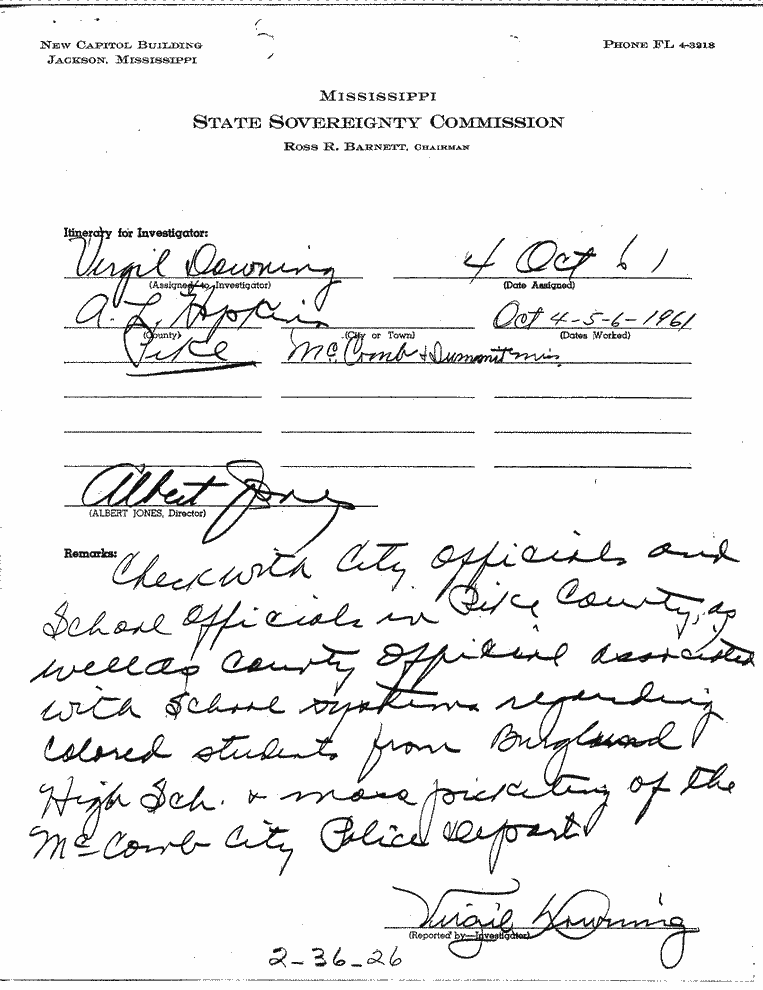 NEW CAPITOL BUILDING
JACKSON, MISSISSIPPI
PHONE FL 4-3218
MISSISSIPPI
STATE SOVEREIGNTY COMMISSION
ROSS R. BARNETT, CHAIRMAN
Itinerary for Investigator:
Virgil Downing 4 Oct 61
(Assigned to Investigator) (Date Assigned)
A. L. Hopkins Oct 4-5-6-1961
(County) (City or Town) (Dates Worked)
Pike McComb & Summit Miss
Albert Jones
(ALBERT JONES, Director)
Remarks:
Check with City Officials and
School Officials in Pike County, as
well as County Official associated
with School systems regarding
Colored students from Burglund
High Sch. & mass picketing of the
McComb City Police Depart
Virgil Downing
(Reported by—Investigator)
2-36-26